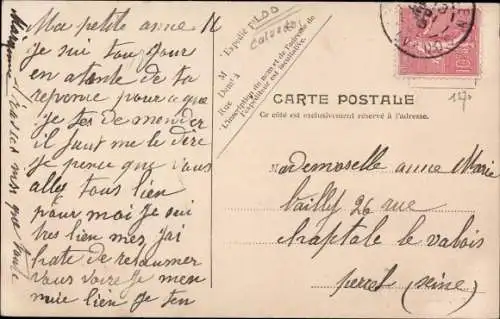 Ma petite anne
je sui toujour
en atente de ta
reponse pour ce que
je tes demander
il faut me le dire
je pence que vous
alley tous bien
pour moi je sui
tres bien mez j'ai
hate de retourner
vous voire je men
nuie bien je ten
Expédié p.
Calvados
M
Demt à
Rue
L'inscription du nom et de l'adresse de
l'expéditeur est facultative.
CARTE POSTALE
Ce côté est exclusivement réservé à l'adresse.
Mademoselle anne Marie
bailly 26 rue
chaptale le valois
perret (seine)